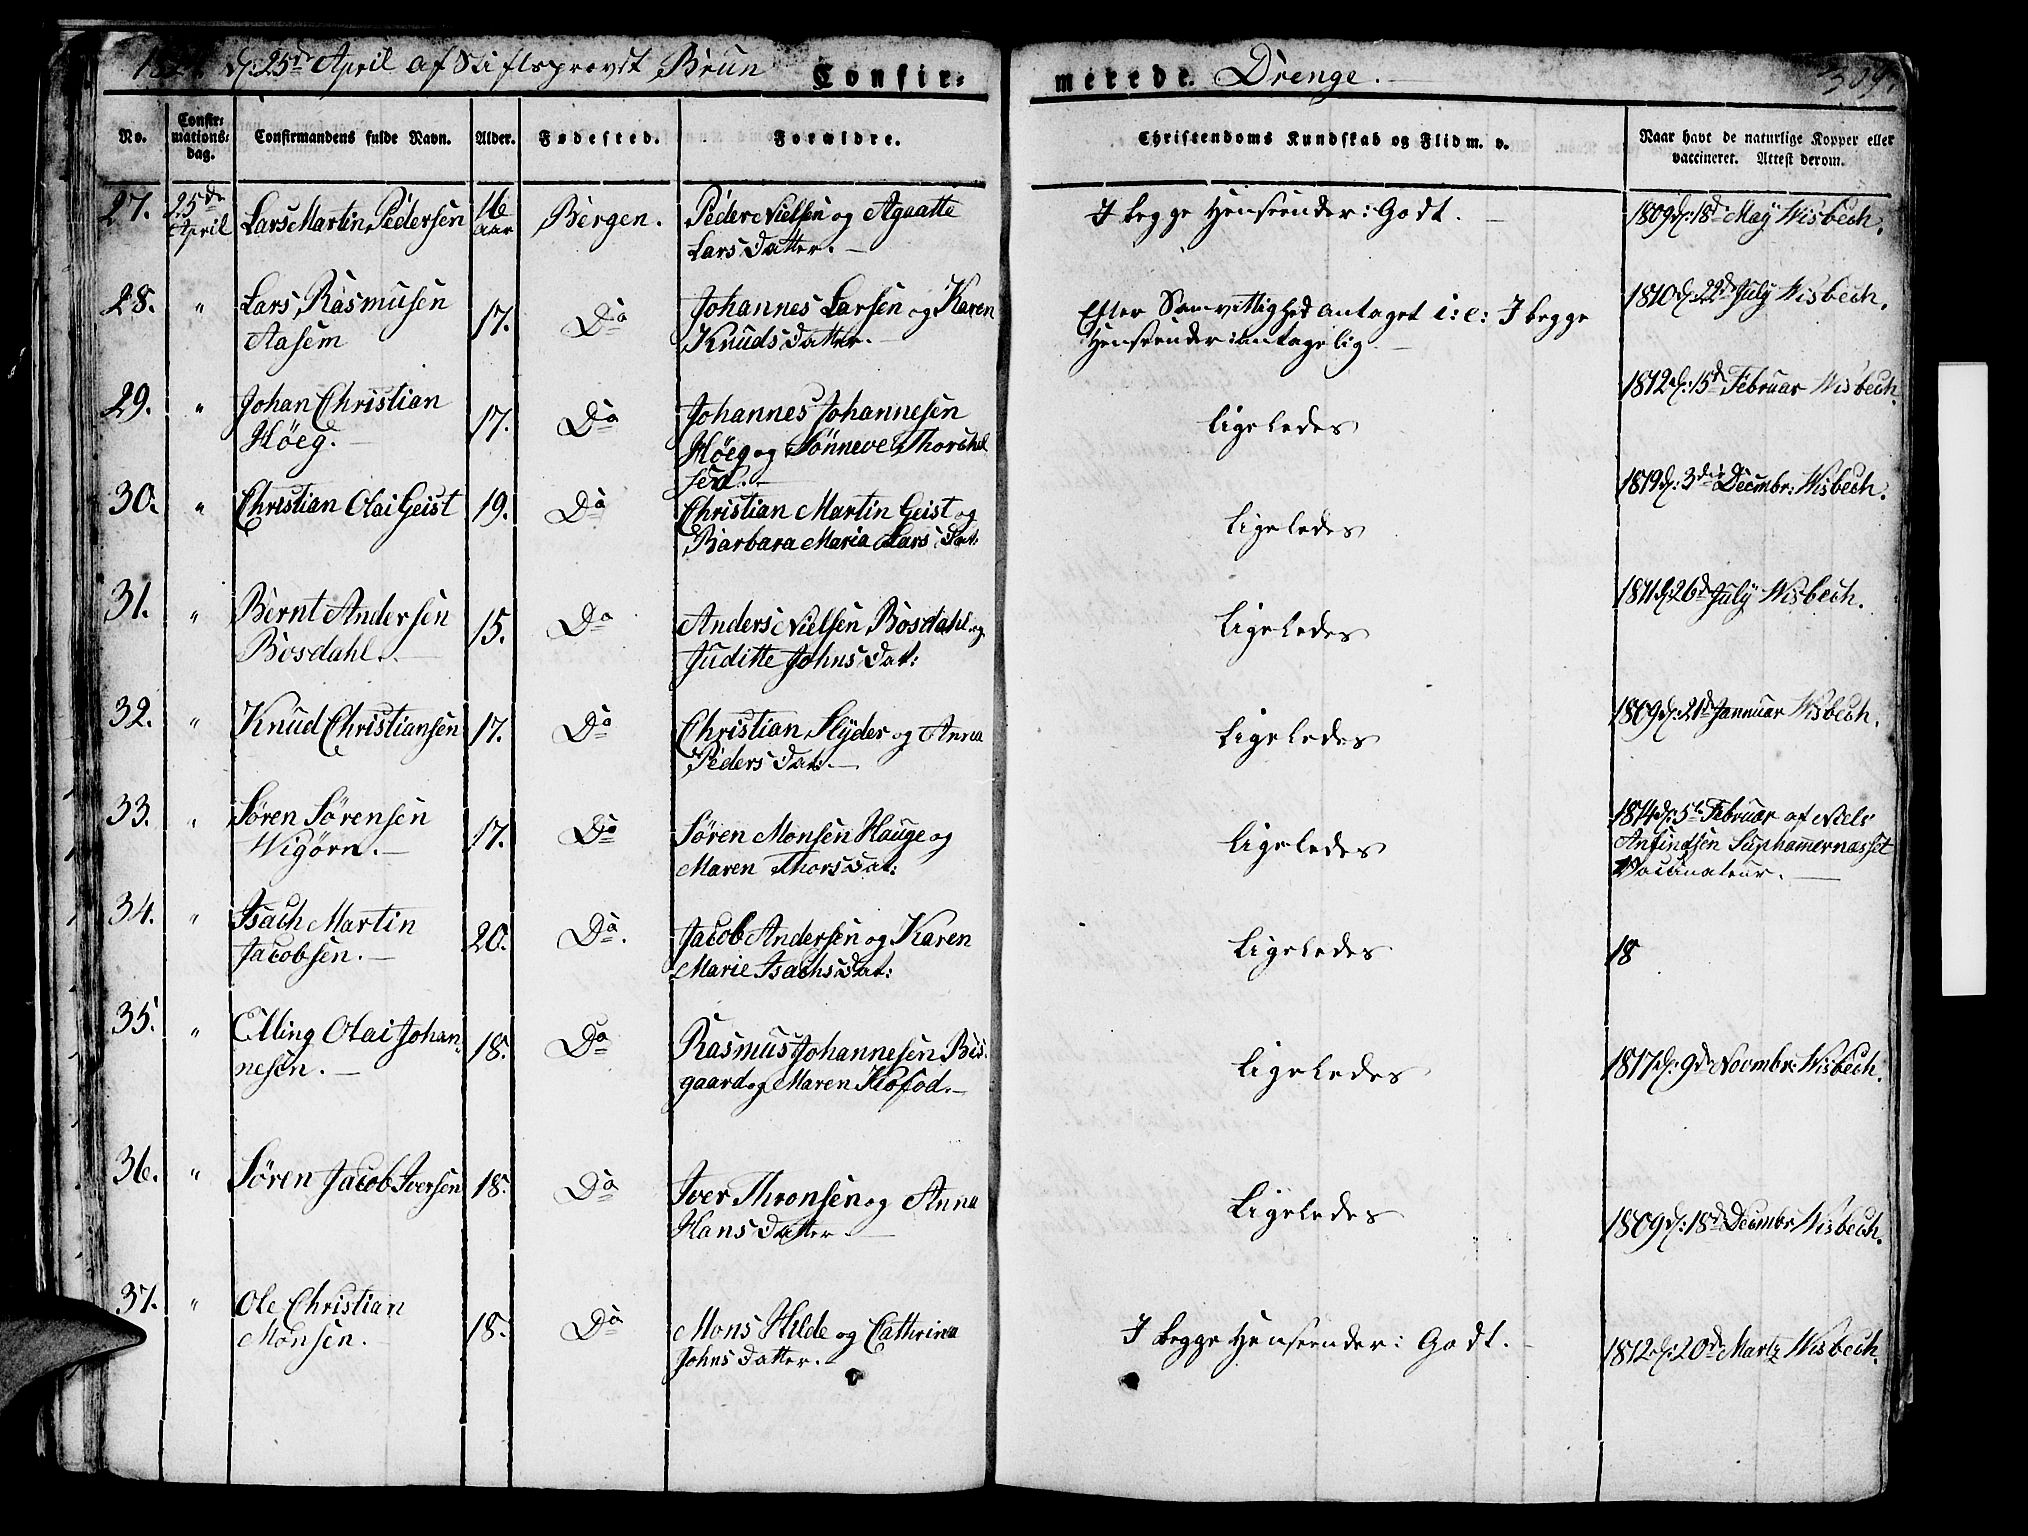 d: 25de April af Stiftsprovst Brun Confir-
merede. Drenge.
309.
No. Confir-mations-dag. Confirmandens fulde Navn. Alder. Fødested. Forældre. Christendoms Kundskab og Flid m. v. Naar havt de naturlige Kopper eller
vaccineret. Attest derom.
27. 25de April Lars Martin Pedersen 16 aar Bergen. Peder Nielsen og Agaatte I begge Henseender: Godt. 1809 d: 18de May Wisbech.
Lars Datter.
28. " Lars Rasmusen 17. Do Johannes Larsen og Karen Efter Samvittighed antaget i: e: I begge 1810 d: 22de July Wisbech.
Aasem Knuds Datter. Henseender: antagelig
29. " Johan Christian 17. Do Johannes Johannesen Ligeledes 1812 d: 15de Februar Wisbech.
Høeg. Høeg og Sønneve Thorchel
sed.
30. " Christian Olai Geist 19. Do Christian Martin Geist og Ligeledes 1819 d: 3de Decmbr: Wisbech.
Barbara Maria Lars Dat:
31. " Bernt Andersen 15. Do Anders Nielsen Bosdahl og Ligeledes 1811 d: 26de July Wisbech.
Bosdahl. Juditte Johns Dat:
32. " Knud Christiansen 17. Do Christian Slyder og Anna Ligeledes 1809 d: 21de Januar Wisbech.
Peders Dat:
33. " Søren Sørensen 17. Do Søren Monsen Hauge og Ligeledes 1814 d: 5te Februar af Niels
Wigørn. Maren Thors Dat: Anfindsen Suphamernæsset
Vaccinateur.
34. " Isach Martin 20. Do. Jacob Andersen og Karen Ligeledes 18
Jacobsen. Marie Isachs Dat:
35. " Elling Olai Johan- 18. Do Rasmus Johannesen Bis- Ligeledes 1817 d: 9de Novmbr: Wisbech.
nesen. gaard og Maren Kofod.
36. " Søren Jacob Iversen 18. Do Iver Thronsen og Anna Ligeledes 1809 d: 18de Decmbr Wisbech.
Hans Datter.
37. " Ole Christian 18. Do Mons Hilde og Cathrina I begge Henseender: Godt. 1812 d: 20de Martz Wisbech.
Monsen. Johns Datter.